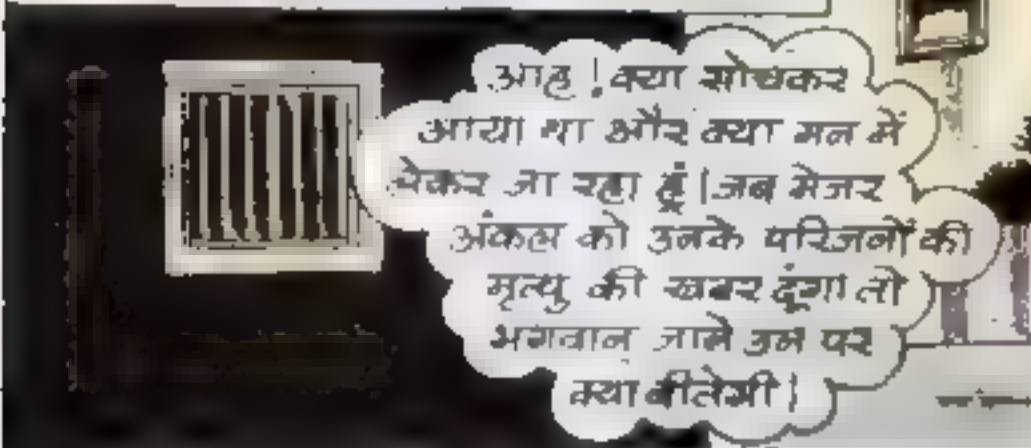 आह ! क्या सोचकर
आया था और क्या मन में
लेकर जा रहा हूं । जब मेजर
अंकल को उनके परिजनों की
मृत्यु की खबर दूंगा तो
भगवान जाने उन पर
क्या बीतेगी ।